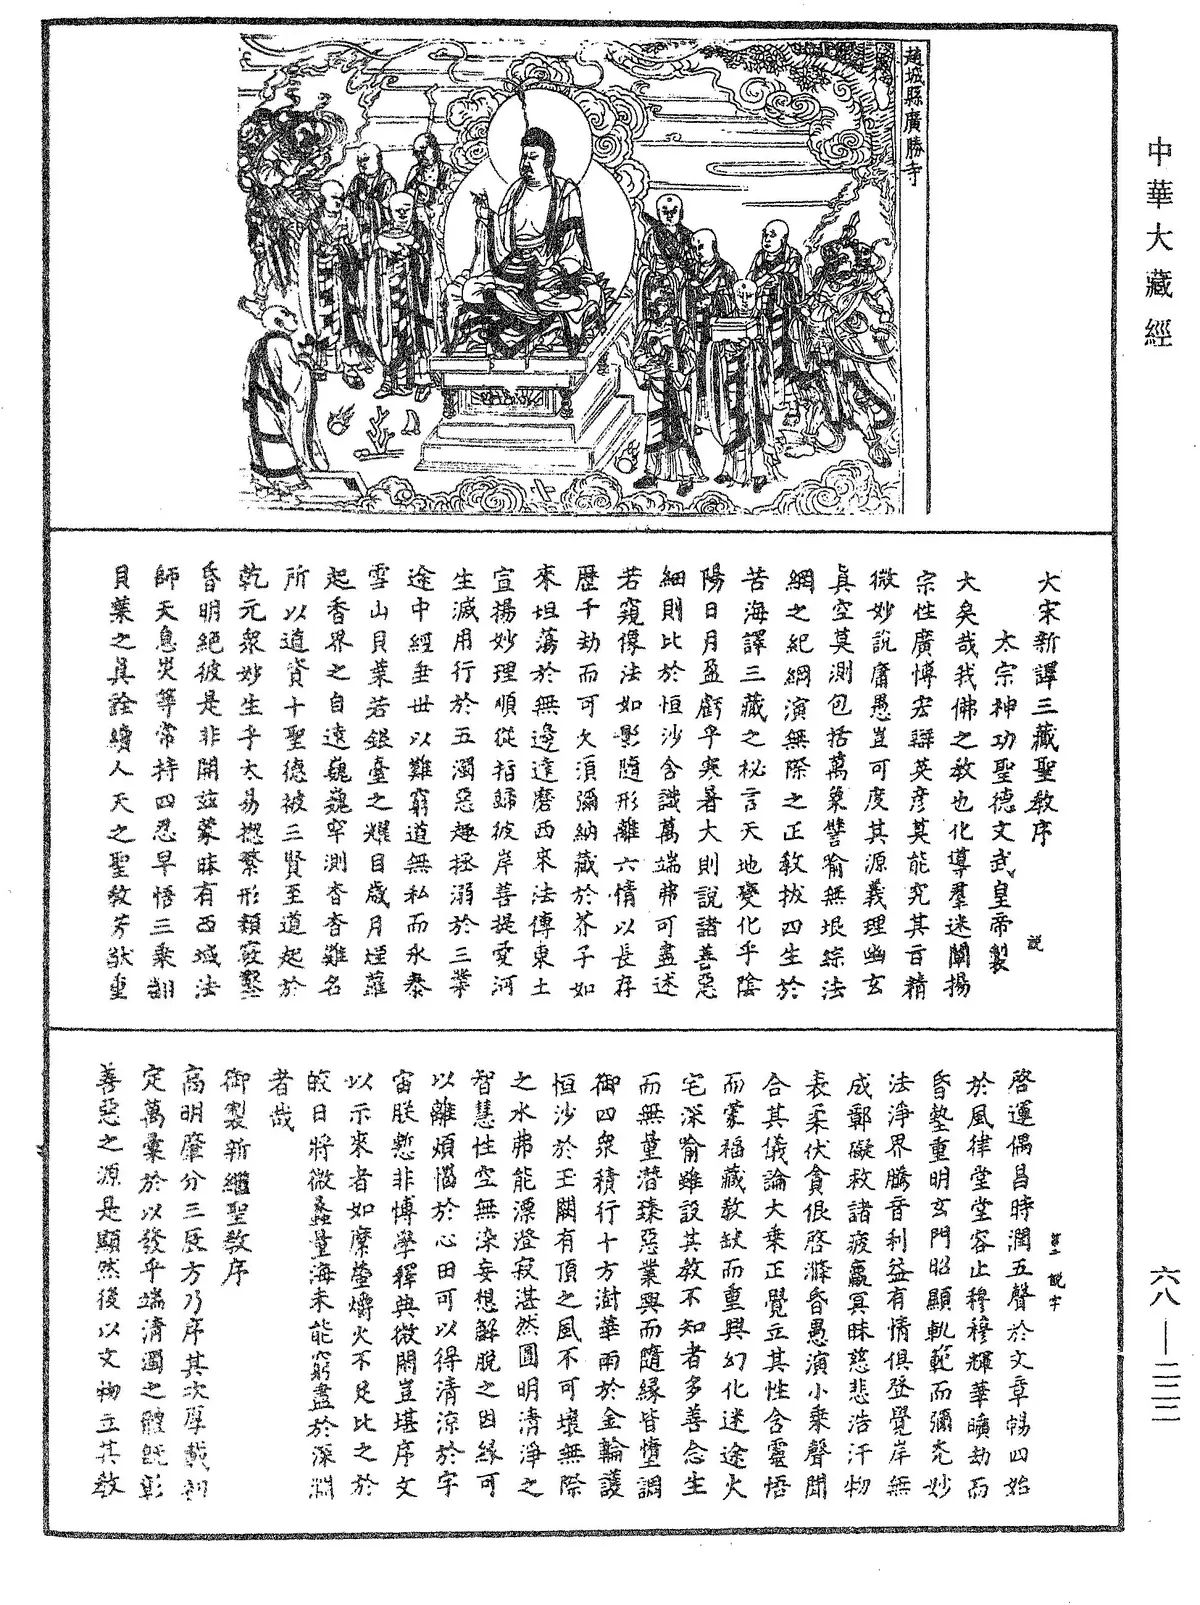 中華大藏經
趙城縣廣勝寺
大宋新譯三藏聖教序 說
太宗神功聖德文武皇帝製
大矣哉我佛之教也化導羣迷闡揚
宗性廣博宏辯英彥莫能究其旨精
微妙說庸愚豈可度其源義理幽玄
真空莫測包括萬象譬喻無垠綜法
網之紀綱演無際之正教拔四生於
苦海譯三藏之秘言天地變化乎陰
陽日月盈虧乎寒暑大則說諸善惡
細則比於恒沙含識萬端弗可盡述
若窺像法如影隨形離六情以長存
歷千劫而可久須彌納藏於芥子如
來坦蕩於無邊達磨西來法傳東土
宣揚妙理順從指歸彼岸菩提愛河
生滅用行於五濁惡趣拯溺於三業
途中經垂世以難窮道無私而永泰
雪山貝葉若銀臺之耀目歲月煙蘿
起香界之自遠巍巍罕測杳杳難名
所以道資十聖德被三賢至道起於
乾元衆妙生乎太易揔繁形類竅鑿
昏明絕彼是非開兹蒙昧有西域法
師天息災等常持四忍早悟三乘翻
貝葉之真詮續人天之聖教芳猷重
啓運偶昌時潤五聲於文章暢四始
於風律堂堂容止穆穆輝華曠劫而
昏墊重明玄門昭顯軌範而彌光妙
法淨界騰音利益有情俱登覺岸無
成鄣礙救諸疲羸冥昧慈悲浩汗物
表柔伏貪佷啓滌昏愚演小乘聲聞
合其儀論大乘正覺立其性含靈悟
而蒙福藏教缺而重興幻化迷途火
宅深喻雖設其教不知者多善念生
而無量潛臻惡業興而隨緣皆墮調
御四衆積行十方澍華雨於金輪護
恒沙於玉闕有頂之風不可壞無際
之水弗能漂澄寂湛然圓明清淨之
智慧性空無染妄想解脫之因緣可
以離煩惱於心田可以得清涼於宇
宙朕慙非博學釋典微閑豈堪序文
以示來者如縻螢爝火不足比之於
皎日將微蠡量海未能窮盡於深淵
者哉
御製新繼聖教序
高明肇分三辰方乃序其次厚載初
定萬彙於以發乎端清濁之體既彰
善惡之源是顯然後以文物立其教
第二 說字
六八—二二二